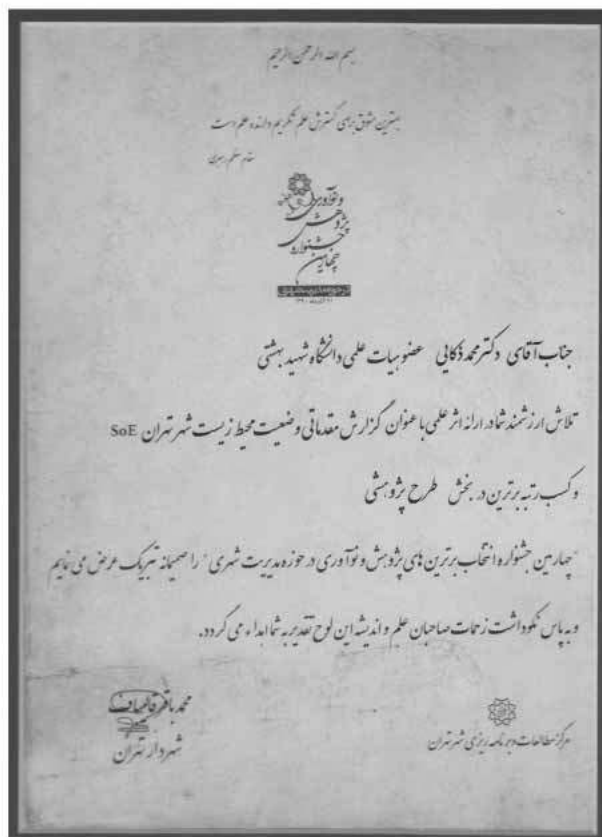 بسم الله الرحمن الرحیم
بهترین مشوق برای گسترش علم تکریم دارنده علم است
مقام معظم رهبری
چهارمین
جشنواره
پژوهش
و نوآوری
جناب آقای دکتر محمد ذکایی عضو هیات علمی دانشگاه شهید بهشتی
تلاش ارزشمند شما در ارائه اثر علمی با عنوان گزارش مقدماتی وضعیت محیط زیست شهر تهران SoE
و کسب رتبه برترین در بخش طرح پژوهشی
"چهارمین جشنواره انتخاب برترین های پژوهش و نوآوری در حوزه مدیریت شهری" را صمیمانه تبریک عرض می نمایم
و به پاس نکوداشت زحمات صاحبان علم و اندیشه این لوح تقدیر به شما اهداء می گردد.
محمد باقر قالیباف
شهردار تهران
مرکز مطالعات و برنامه ریزی شهر تهران